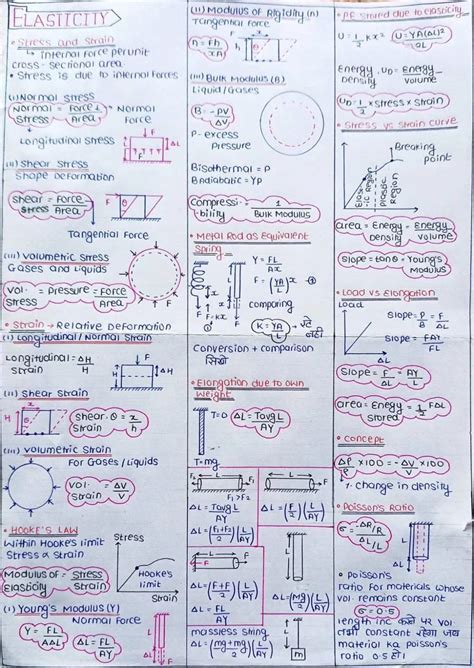 ELASTICITY
• Stress and Strain
↳ internal force per unit
cross-sectional area
• Stress is due to internal forces
(i) Normal Stress
Normal Stress = Force⊥ / Area → Normal Force
Longitudinal stress
F
ΔL
(ii) Shear Stress
Shape deformation
Shear Stress = Force / Area
θ
F
Tangential Force
(iii) Volumetric Stress
Gases and Liquids
Vol. Stress = Pressure = Force / Area
F
• Strain → Relative deformation
(i) Longitudinal/Normal Strain
Longitudinal Strain = ΔH / H
H
F
ΔH
(ii) Shear Strain
H
x
θ
Shear Strain θ = x / h
(iii) Volumetric Strain
For Gases / Liquids
Vol. Strain = ΔV / V
• HOOKE'S LAW
Within Hooke's limit
Stress α Strain
Modulus of Elasticity = Stress / Strain
Stress
Hooke's limit
Strain
(i) Young's Modulus (Y)
Normal Force
Y = FL / AΔL
L
ΔL
F
(ii) Modulus of Rigidity (η)
Tangential Force
η = Fh / Ax
h
x
F
(iii) Bulk Modulus (B)
Liquid/Gases
B = -PV / ΔV
P - excess
Pressure
Bisothermal = P
Badiabatic = γP
Compressibility = 1 / Bulk Modulus
• Metal Rod as Equivalent
Spring
Y = FL / Ax
F = (YA / L) x
F = Kx
comparing
K = YA / L
Conversion + comparison
सिखो
• Elongation due to own
Weight
T=0
T=mg
ΔL = Tavg L / AY
F1
L
F2
F1 > F2
ΔL = Tavg L / AY
ΔL = (F1+F2 / 2)(L / AY)
L
F
ΔL = (F / 2)(L / AY)
F
L
F
ΔL = (F+F / 2)(L / AY)
ΔL = FL / AY
L
ΔL = (mg / 2)(L / AY)
massless string
ΔL = (mg+mg / 2)(L / AY)
L
m
ΔL = mgL / AY
• PE stored due to elasticity
U = 1/2 Kx²
U = YA(ΔL)² / 2L
Energy Density, UD = Energy / Volume
UD = 1/2 × stress × strain
• Stress vs Strain Curve
Breaking
point
Plastic
Region
area = Energy Density = Energy / Volume
Slope = tanθ = Young's Modulus
• LOAD vs Elongation
Load
ΔL
Slope = F / ΔL
Slope = F / ΔL = AY / L
area = Energy stored = 1/2 FΔL
• Concept
Δρ / ρ × 100 = -ΔV / V × 100
% change in density
• Poisson's Ratio
σ = -ΔR/R / ΔL/L
L
ΔL
• Poisson's
ratio for materials whose
vol. remains constant
σ = 0.5